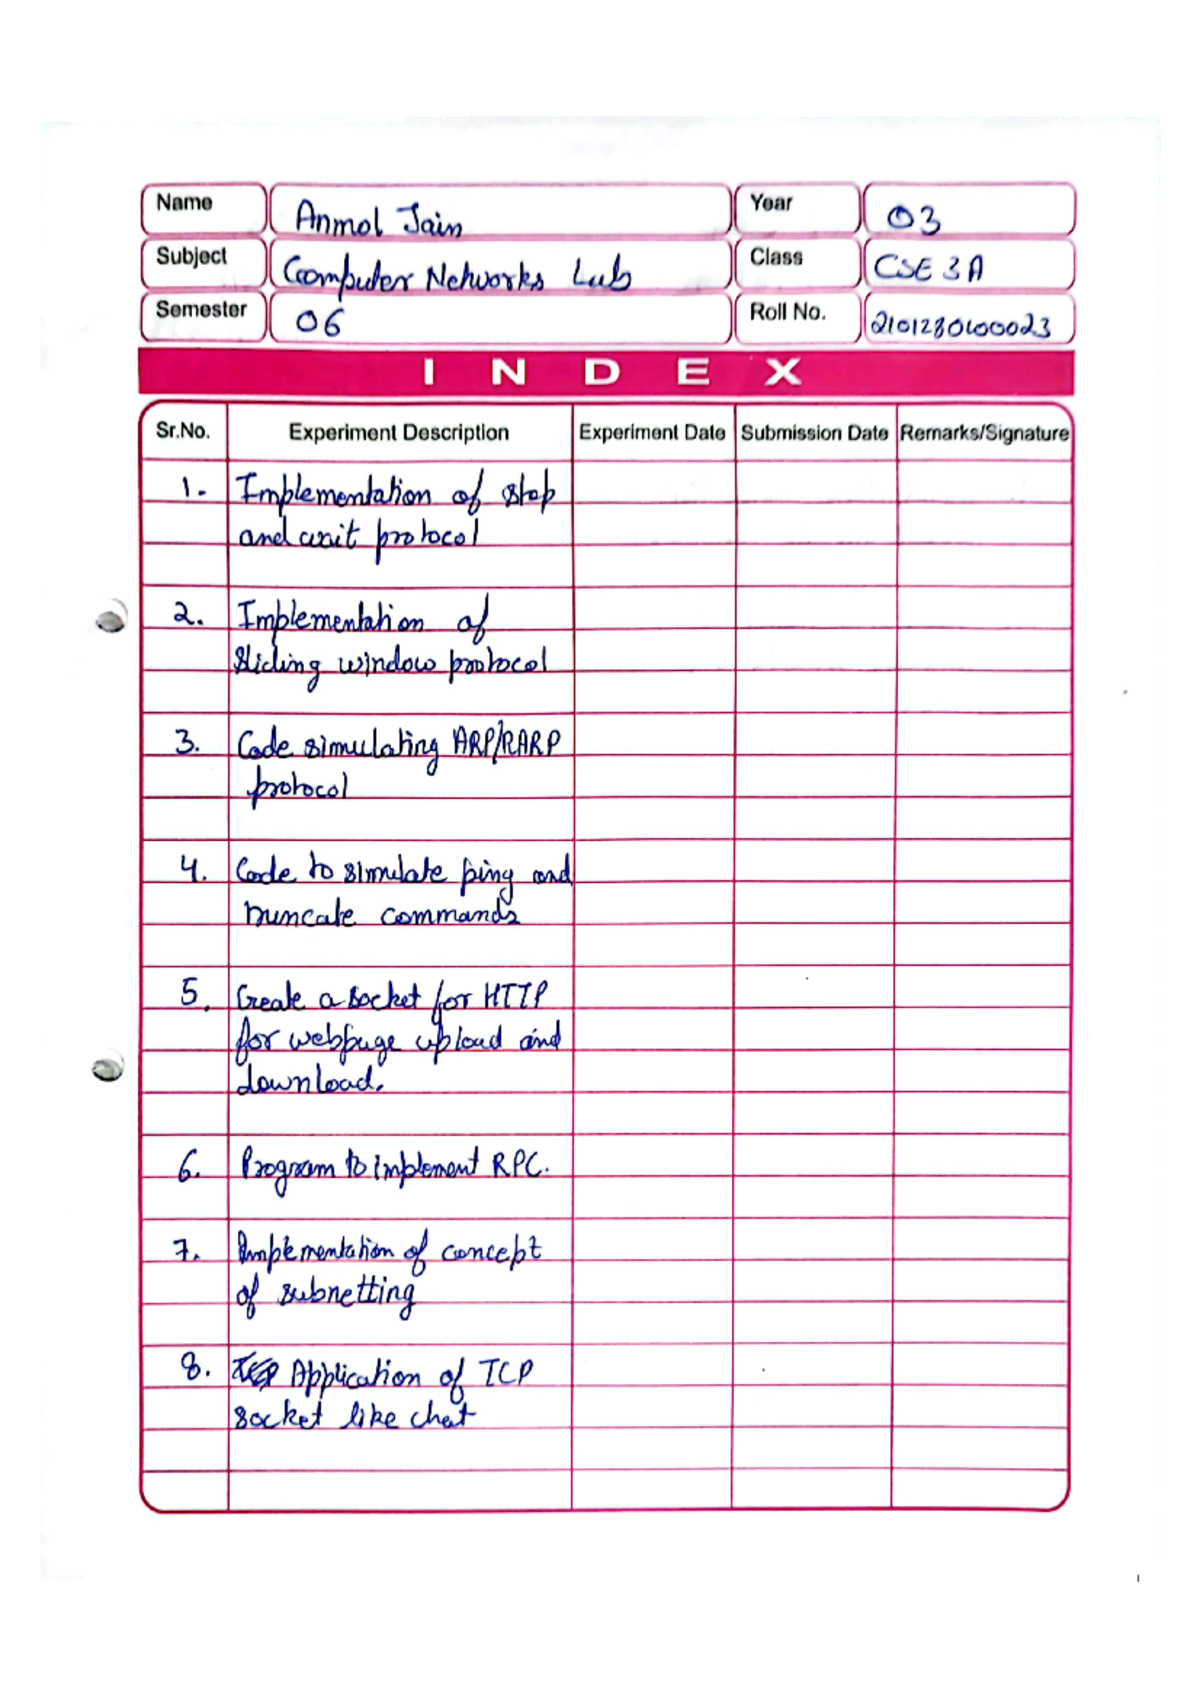 Name Anmol Jain Year 03
Subject Computer Networks Lab Class CSE 3A
Semester 06 Roll No. 2101280100023
INDEX
Sr.No. Experiment Description Experiment Date Submission Date Remarks/Signature
1. Implementation of stop
and wait protocol
2. Implementation of
sliding window protocol
3. Code simulating ARP/RARP
protocol
4. Code to simulate ping and
truncate commands
5. Create a socket for HTTP
for webpage upload and
download.
6. Program to implement RPC.
7. Implementation of concept
of subnetting
8. Application of TCP
socket like chat